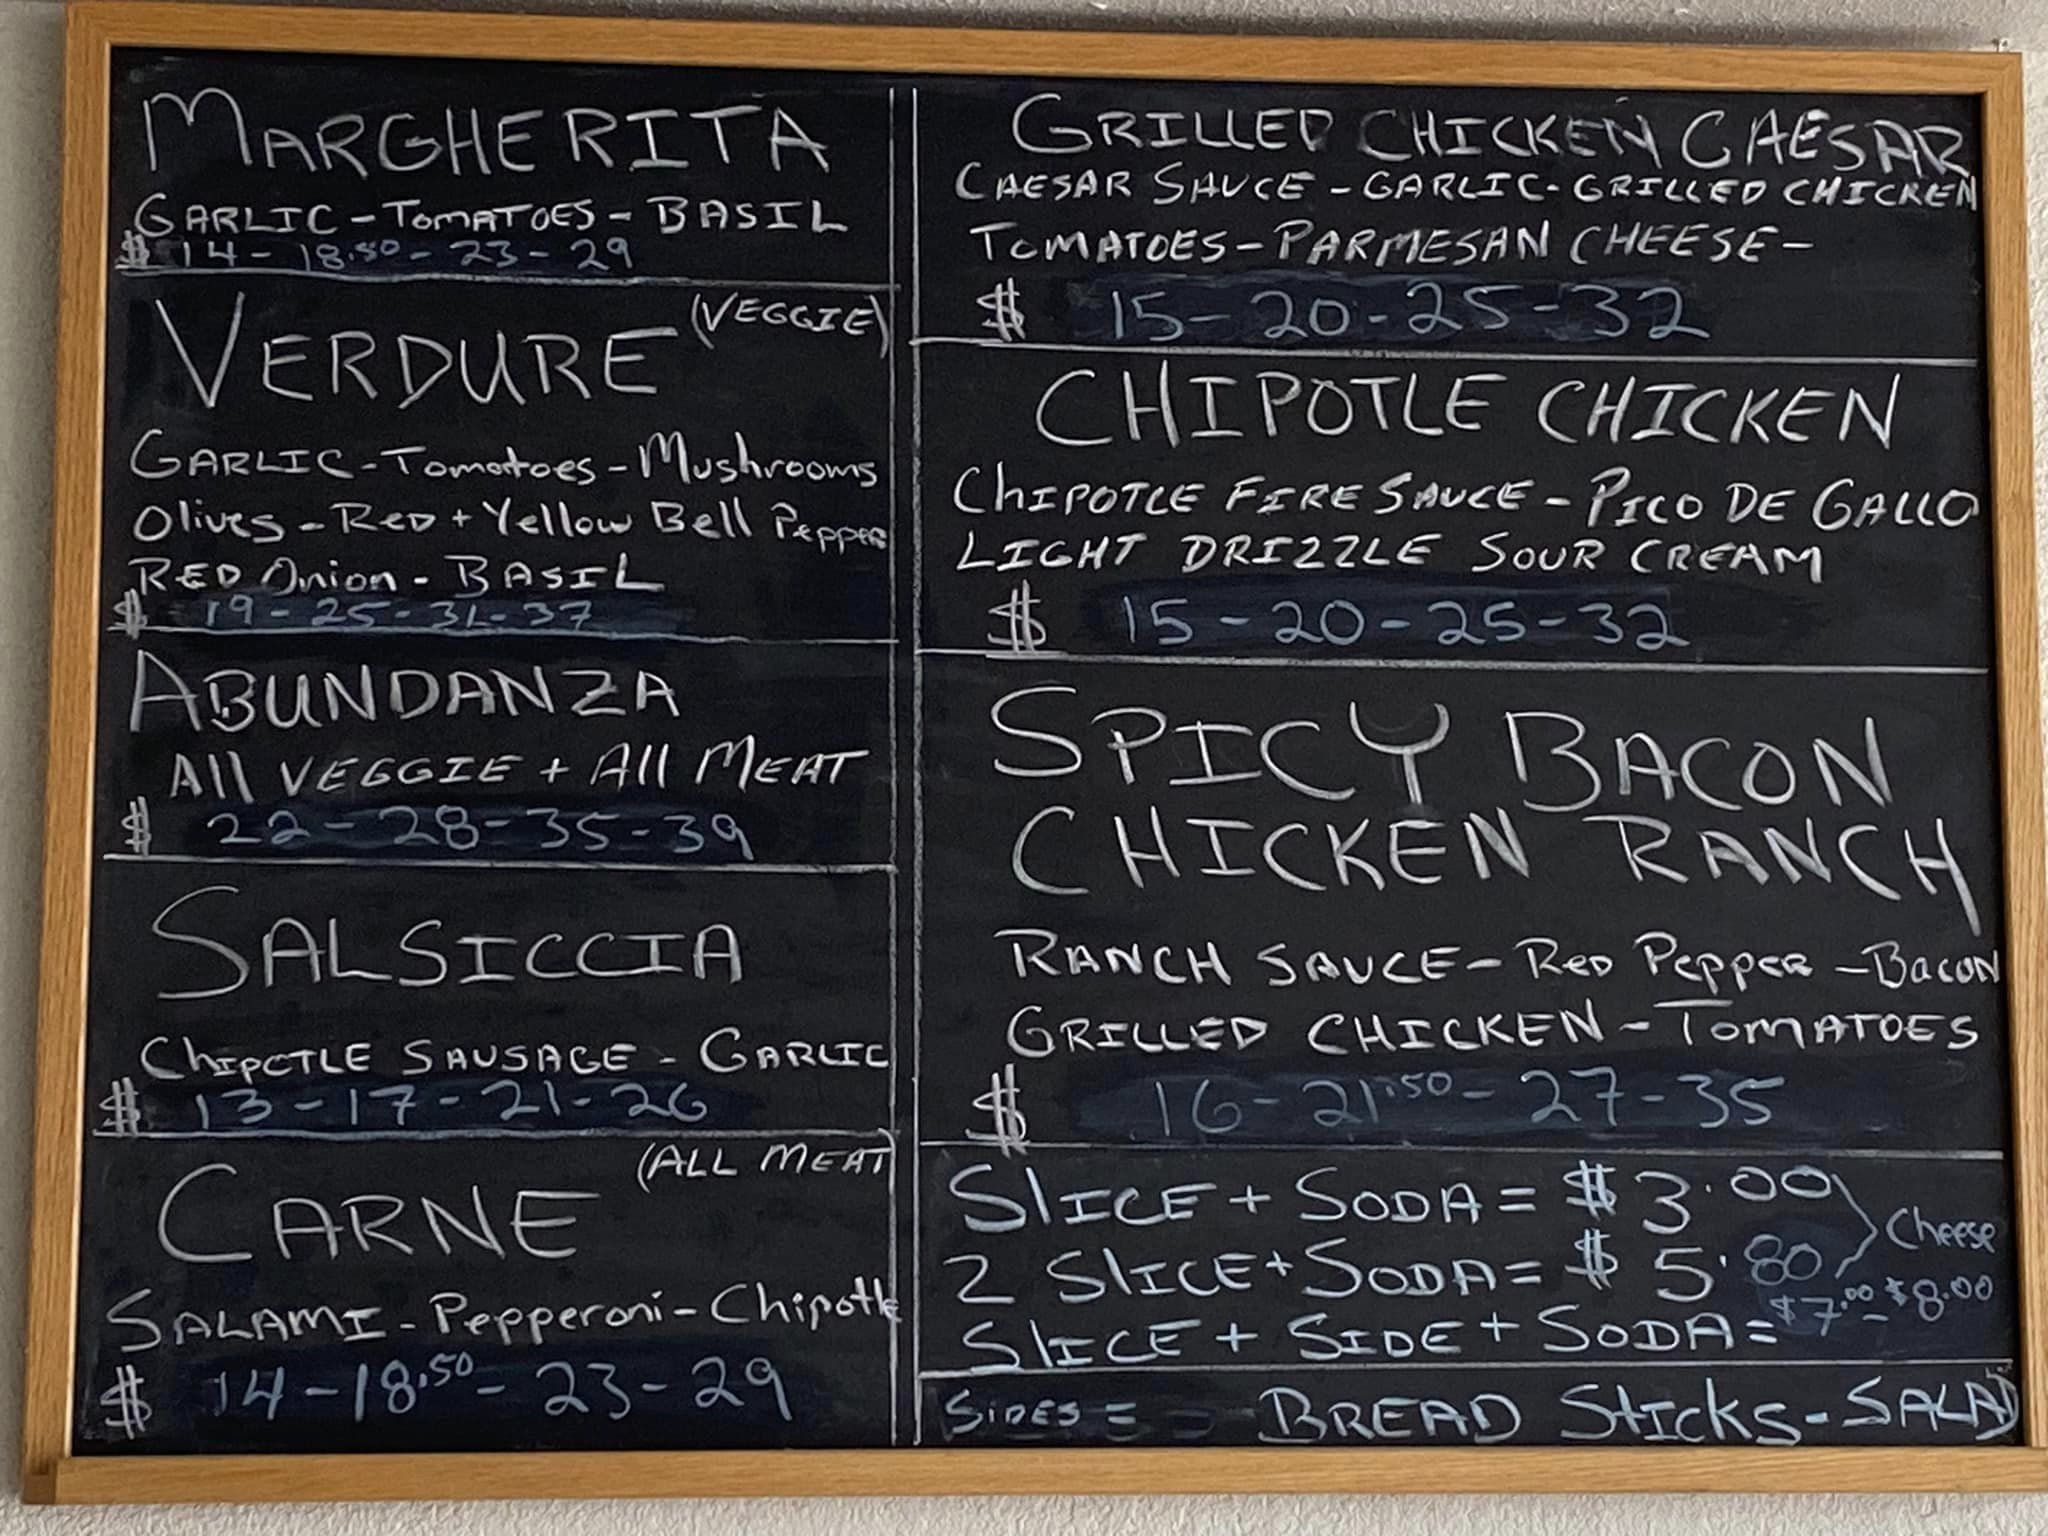 MARGHERITA
GARLIC - TOMATOES - BASIL
$ 14 - 18.50 - 23 - 29
VERDURE (VEGGIE)
GARLIC - Tomatoes - Mushrooms
Olives - RED + Yellow Bell Pepper
RED Onion - BASIL
$ 19 - 25 - 31 - 37
ABUNDANZA
All VEGGIE + All MEAT
$ 22 - 28 - 35 - 39
SALSICCIA
CHIPOTLE SAUSAGE - GARLIC
$ 13 - 17 - 21 - 26
CARNE (ALL MEAT
SALAMI - Pepperoni - Chipotle
$ 14 - 18.50 - 23 - 29
GRILLED CHICKEN CAESAR
CAESAR SAUCE - GARLIC - GRILLED CHICKEN
TOMATOES - PARMESAN CHEESE -
$ 15 - 20 - 25 - 32
CHIPOTLE CHICKEN
CHIPOTLE FIRE SAUCE - PICO DE GALLO
LIGHT DRIZZLE SOUR CREAM
$ 15 - 20 - 25 - 32
SPICY BACON
CHICKEN RANCH
RANCH SAUCE - RED PEPPER - BACON
GRILLED CHICKEN - TOMATOES
$ 16 - 21.50 - 27 - 35
SLICE + SODA = $3.00
2 SLICE + SODA = $5.80
Cheese
SLICE + SIDE + SODA = $7.00 - $8.00
SIDES = BREAD STICKS - SALAD